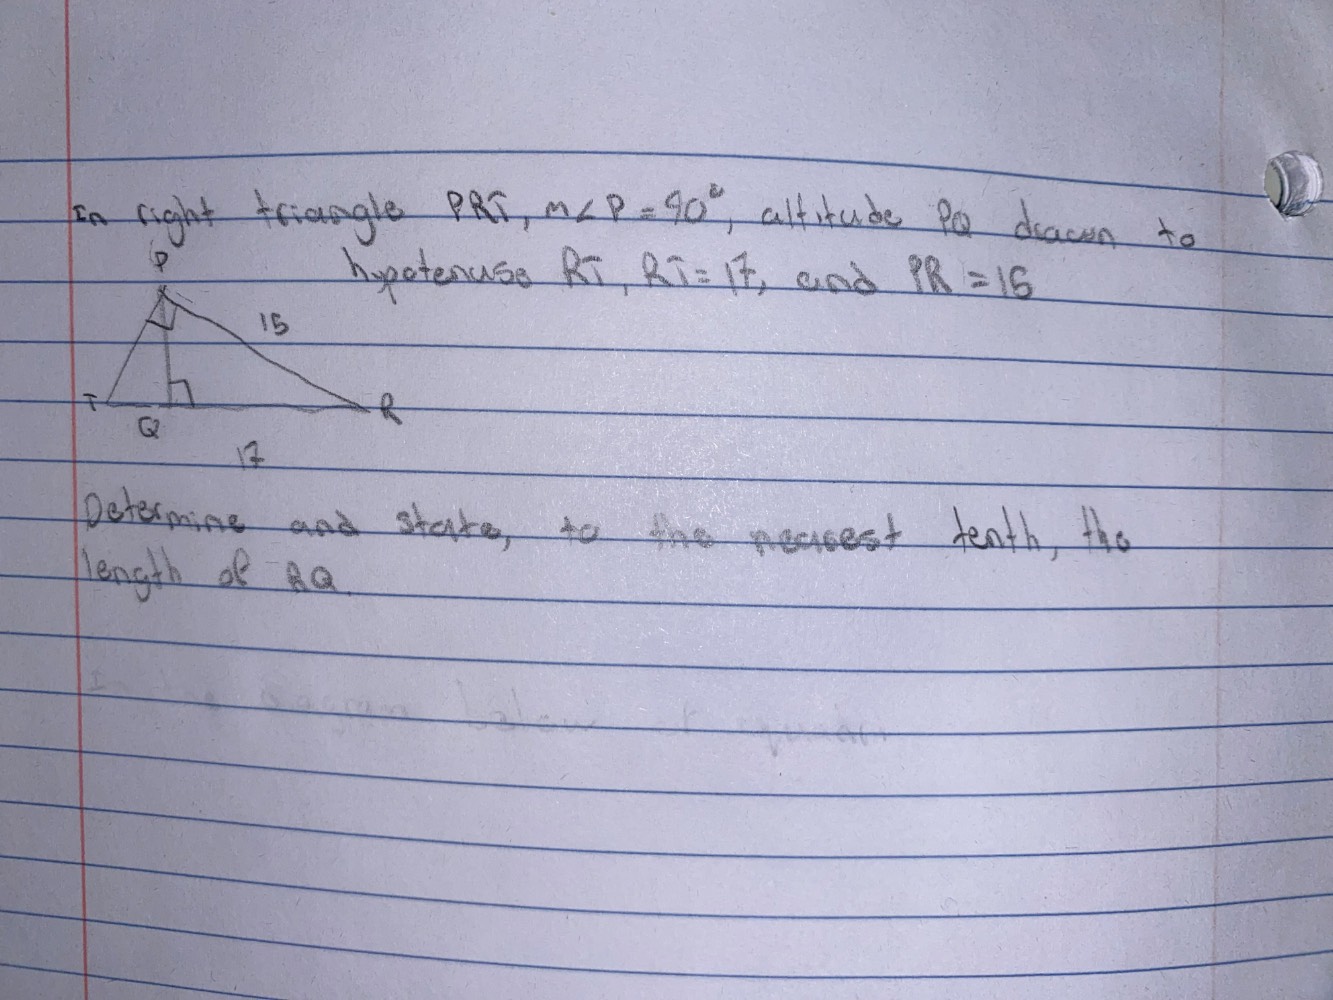 In right triangle PRT, m∠P = 90°, altitude PQ drawn to
hypotenuse RT, RT = 17, and PR = 15
P
15
T
Q
R
17
Determine and state, to the nearest tenth, the
length of RQ.